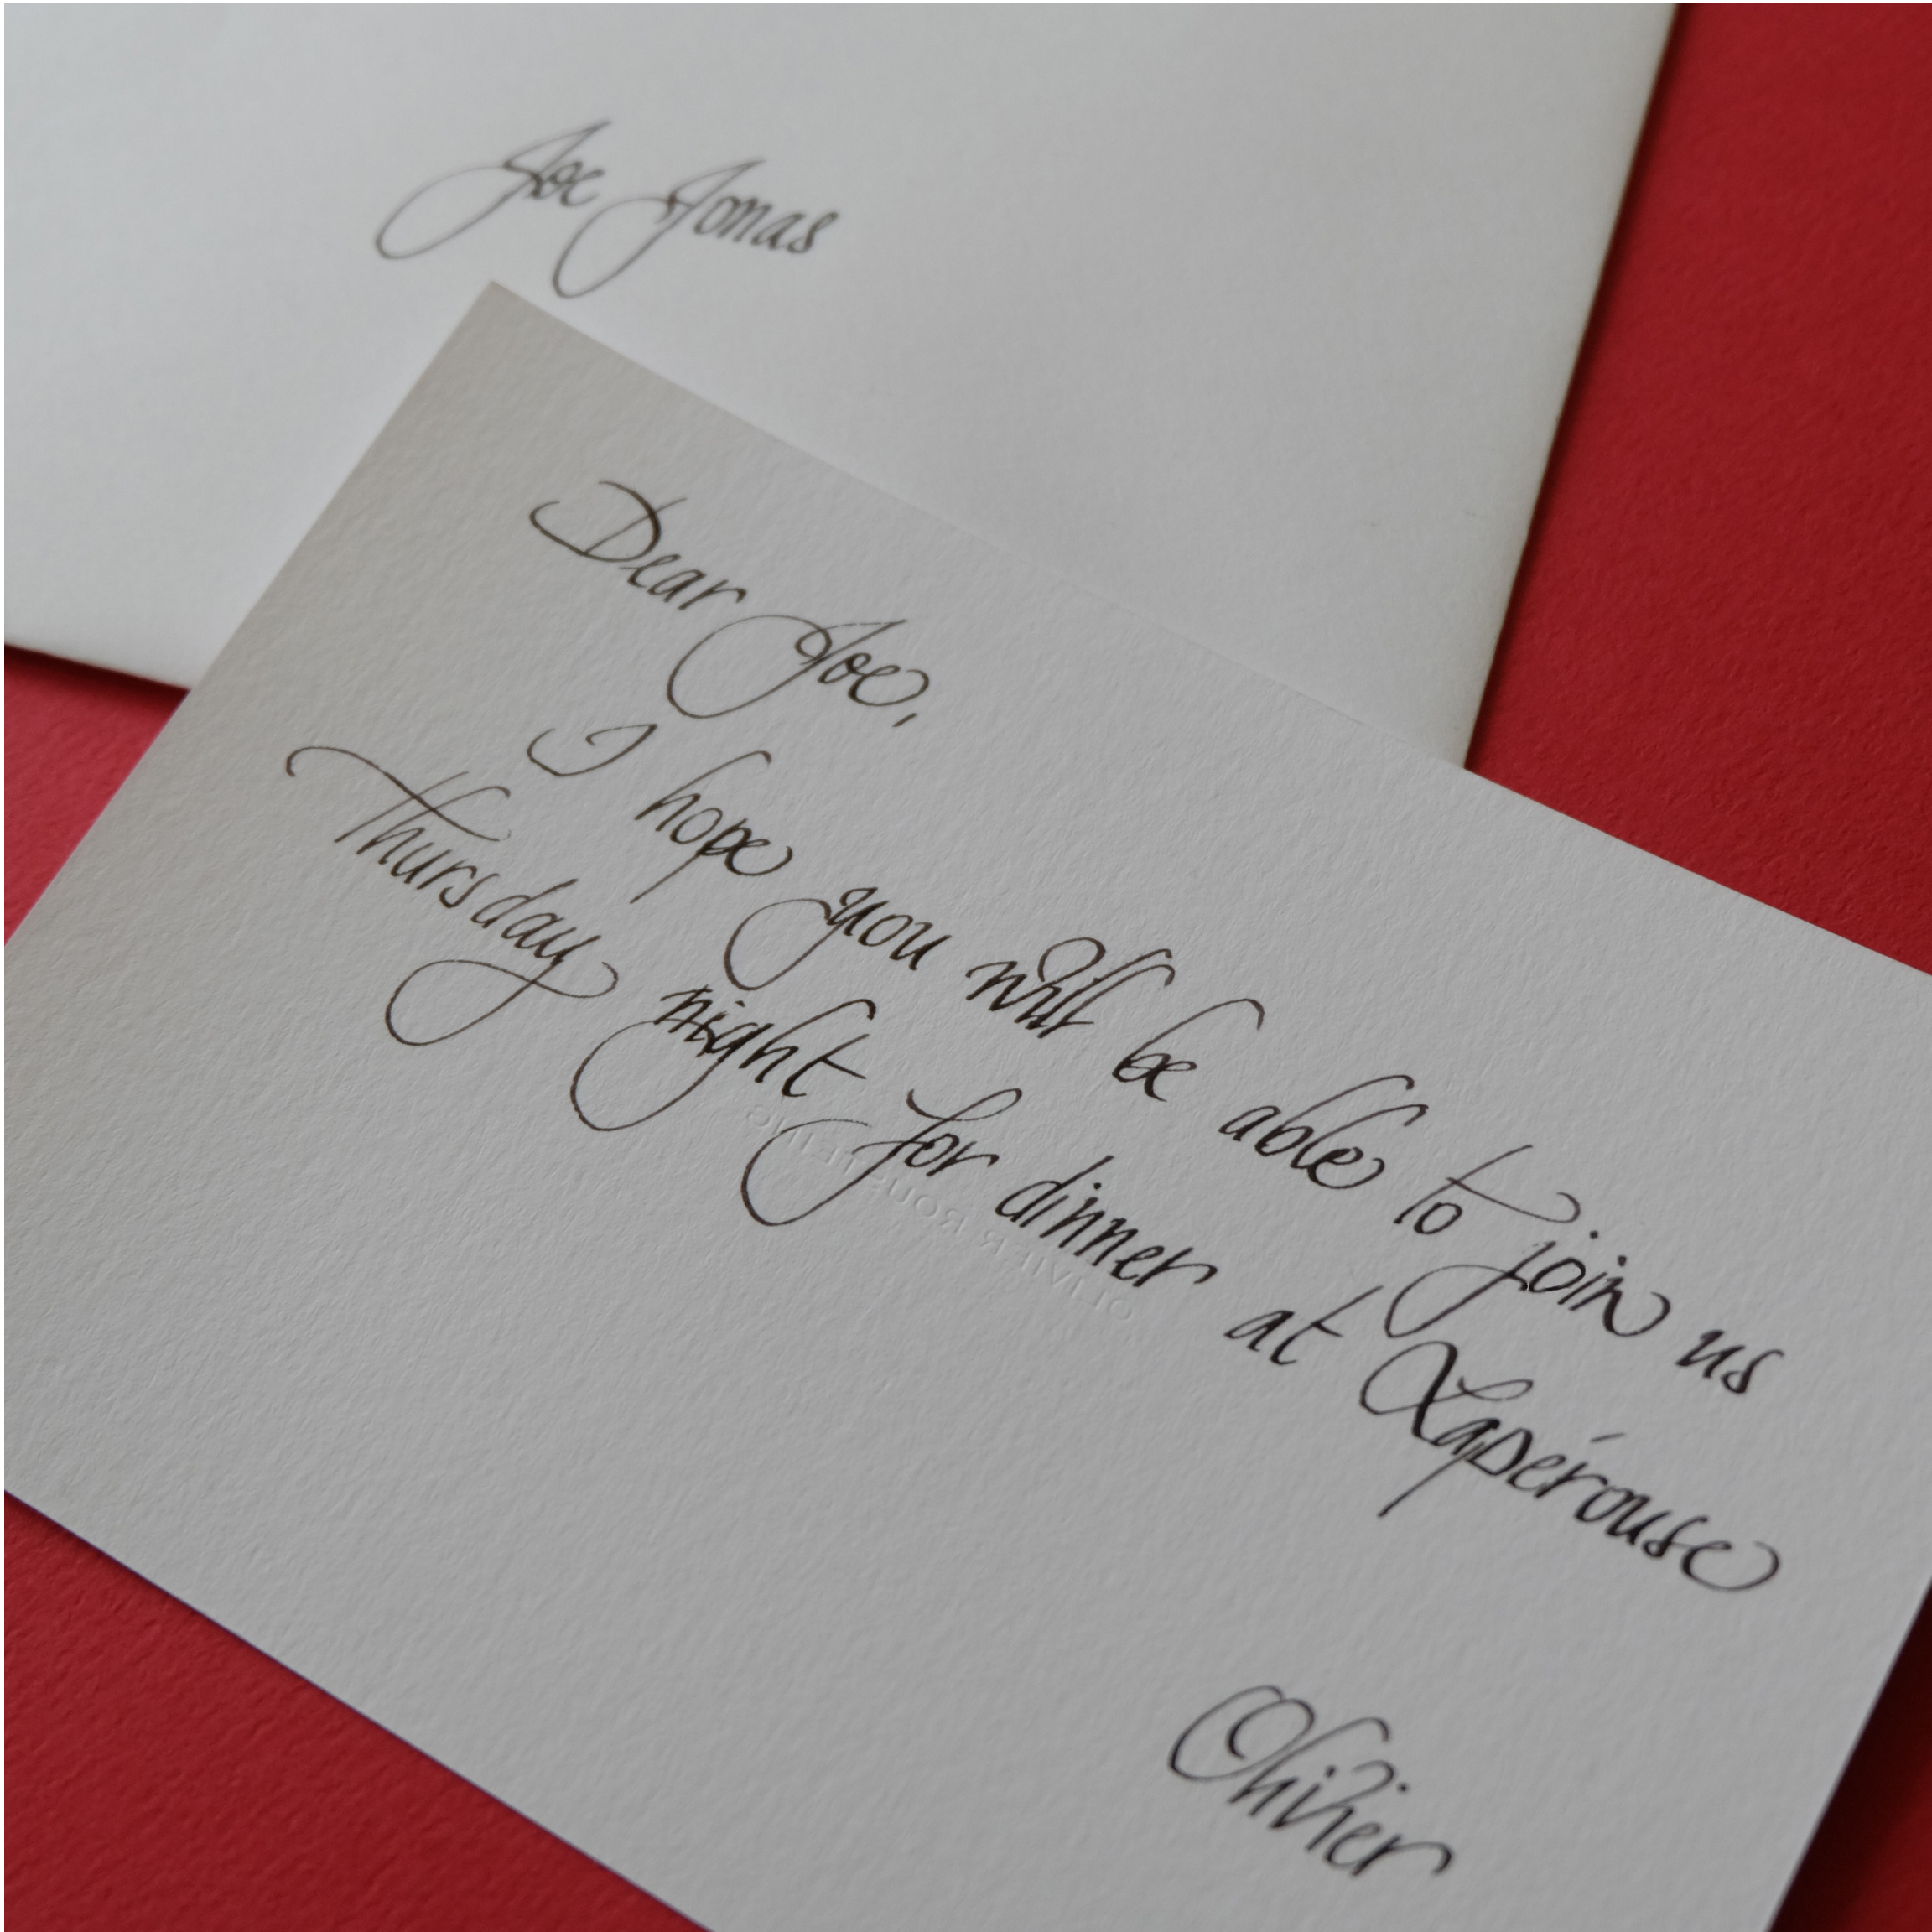 Joe Jonas
Dear Joe,
I hope you will be able to join us
Thursday night for dinner at Lapérouse
OLIVIER ROUSTEING
Olivier